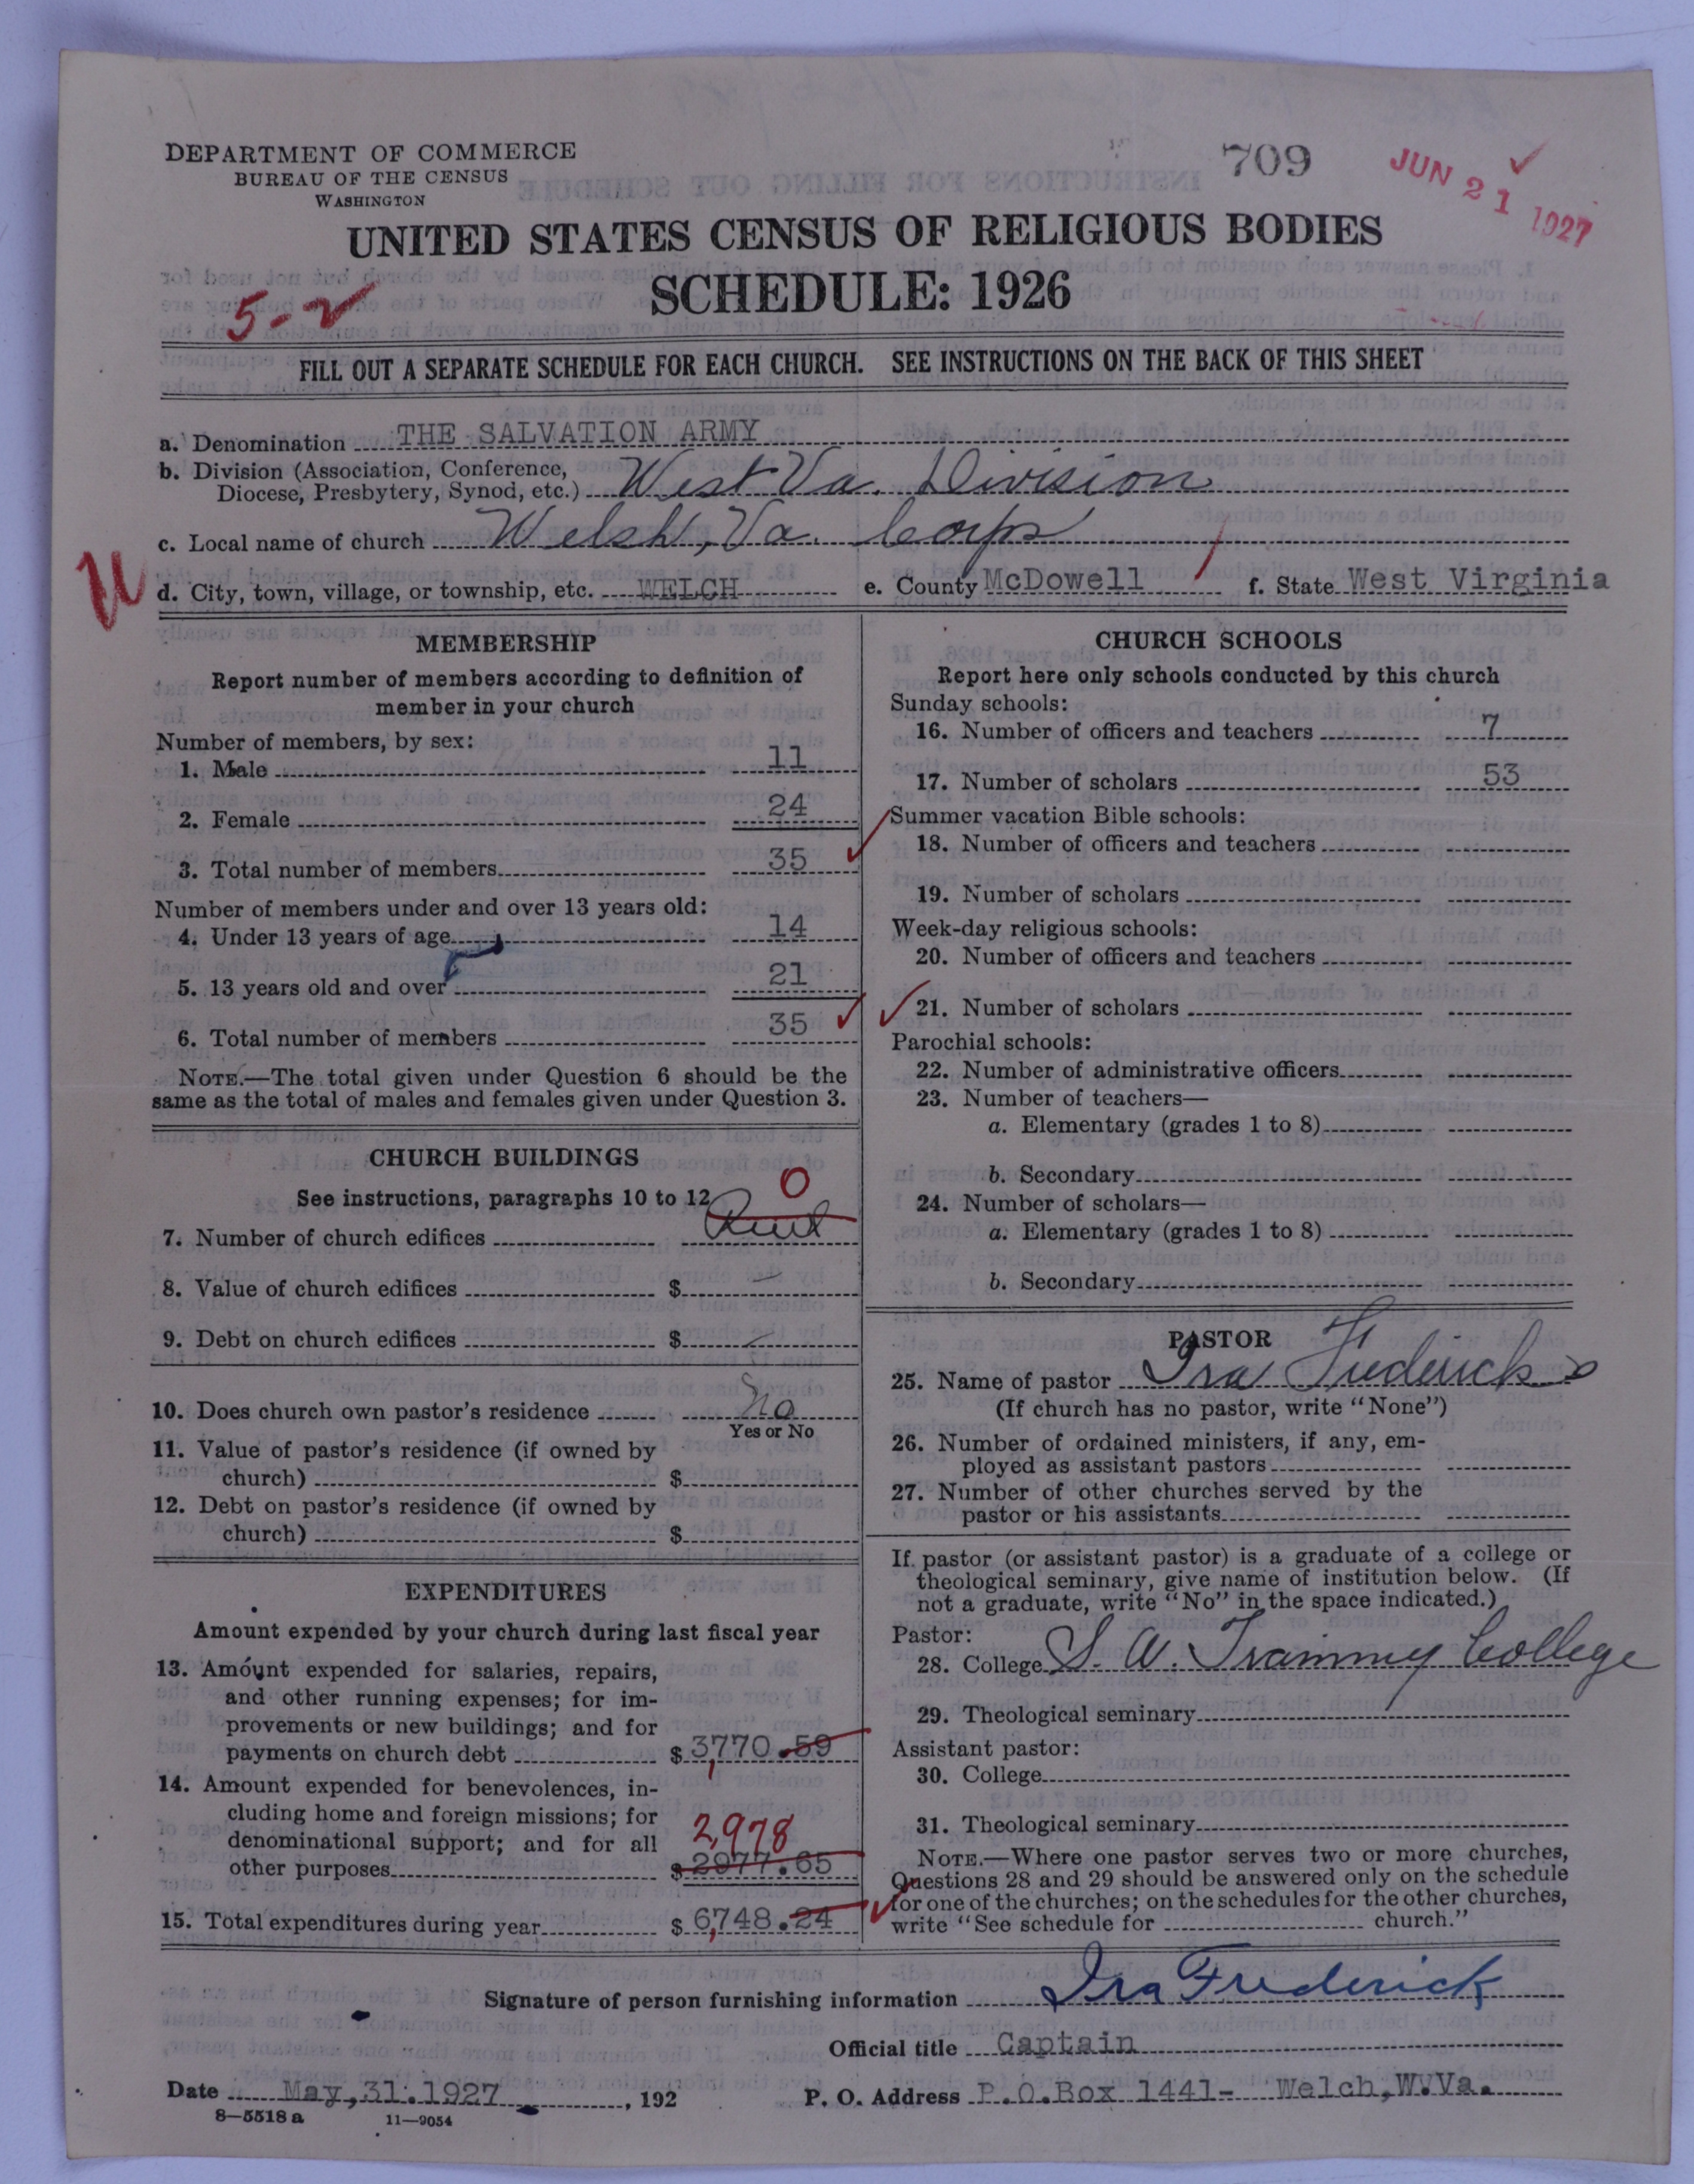 DEPARTMENT OF COMMERCE
BUREAU OF THE CENSUS
WASHINGTON
709
JUN 21 1927
UNITED STATES CENSUS OF RELIGIOUS BODIES
SCHEDULE: 1926
5-2
FILL OUT A SEPARATE SCHEDULE FOR EACH CHURCH. SEE INSTRUCTIONS ON THE BACK OF THIS SHEET
a. Denomination THE SALVATION ARMY
b. Division (Association, Conference,
Diocese, Presbytery, Synod, etc.) West Va. Division
c. Local name of church Welsh, Va. Corps
d. City, town, village, or township, etc. WELCH e. County McDowell f. State West Virginia
MEMBERSHIP
Report number of members according to definition of
member in your church
Number of members, by sex:
1. Male 11
2. Female 24
3. Total number of members 35
Number of members under and over 13 years old:
4. Under 13 years of age 14
5. 13 years old and over 21
6. Total number of members 35
NOTE.—The total given under Question 6 should be the
same as the total of males and females given under Question 3.
CHURCH BUILDINGS
See instructions, paragraphs 10 to 12
0
7. Number of church edifices Rent
8. Value of church edifices $ —
9. Debt on church edifices $ —
10. Does church own pastor's residence No
Yes or No
11. Value of pastor's residence (if owned by
church) $
12. Debt on pastor's residence (if owned by
church) $
EXPENDITURES
Amount expended by your church during last fiscal year
13. Amount expended for salaries, repairs,
and other running expenses; for im-
provements or new buildings; and for
payments on church debt $ 3,770.59
14. Amount expended for benevolences, in-
cluding home and foreign missions; for
denominational support; and for all
2,978
other purposes $ 2977.65
15. Total expenditures during year $ 6,748.24
CHURCH SCHOOLS
Report here only schools conducted by this church
Sunday schools:
16. Number of officers and teachers 7
17. Number of scholars 53
Summer vacation Bible schools:
18. Number of officers and teachers
19. Number of scholars
Week-day religious schools:
20. Number of officers and teachers
21. Number of scholars
Parochial schools:
22. Number of administrative officers
23. Number of teachers—
a. Elementary (grades 1 to 8)
b. Secondary
24. Number of scholars—
a. Elementary (grades 1 to 8)
b. Secondary
PASTOR
25. Name of pastor Ira Fredericks
(If church has no pastor, write "None")
26. Number of ordained ministers, if any, em-
ployed as assistant pastors
27. Number of other churches served by the
pastor or his assistants
If pastor (or assistant pastor) is a graduate of a college or
theological seminary, give name of institution below. (If
not a graduate, write "No" in the space indicated.)
Pastor:
28. College S. W. Trainny College
29. Theological seminary
Assistant pastor:
30. College
31. Theological seminary
NOTE.—Where one pastor serves two or more churches,
Questions 28 and 29 should be answered only on the schedule
for one of the churches; on the schedules for the other churches,
write "See schedule for church."
Signature of person furnishing information Ira Frederick
Official title Captain
Date May, 31. 1927 , 192 P. O. Address P.O.Box 1441- Welch,W.Va.
8—5518 a 11—9054